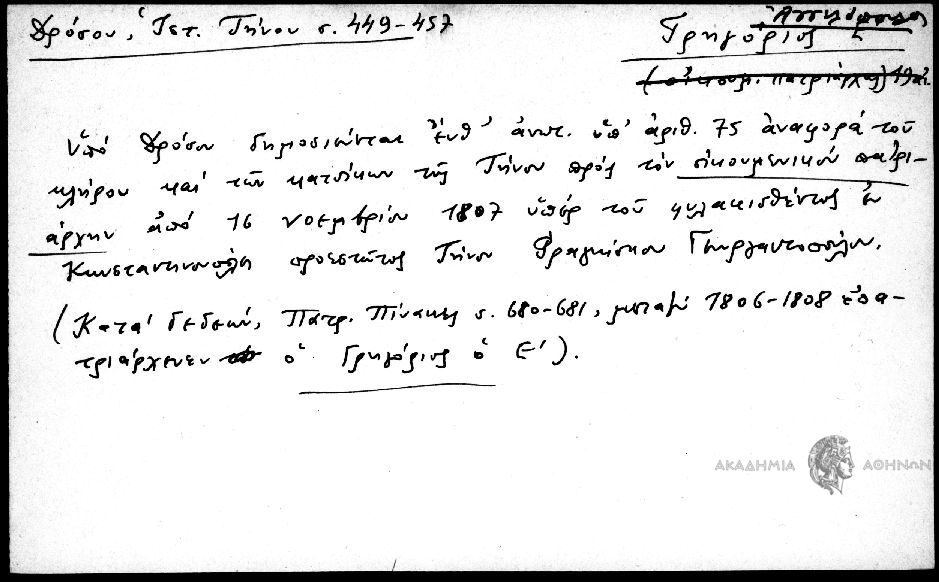 Δρόσου, Ἱστ. Τήνου σ. 449-457
Ἀγγελόπουλος
Γρηγόριος
(οἰκουμ. πατριάρχης) 19 αἰ.
Ὑπό Δρόσου δημοσιεύεται ἔνθ' ἀνωτ. ὑπ' ἀριθ. 75 ἀναφορά τοῦ
κλήρου καί τῶν κατοίκων τῆς Τήνου πρός τόν οἰκουμενικόν πατρι-
άρχην ἀπό 16 νοεμβρίου 1807 ὑπέρ τοῦ φυλακισθέντος ἐν
Κωνσταντινουπόλει προεστῶτος Τήνου Φραγκίσκου Γεωργαντοπούλου.
(Κατά Γεδεών, Πατρ. Πίνακες σ. 680-681, μεταξύ 1806-1808 ἐπα-
τριάρχευεν ὁ Γρηγόριος ὁ Ε').
ΑΚΑΔΗΜΙΑ ΑΘΗΝΩΝ